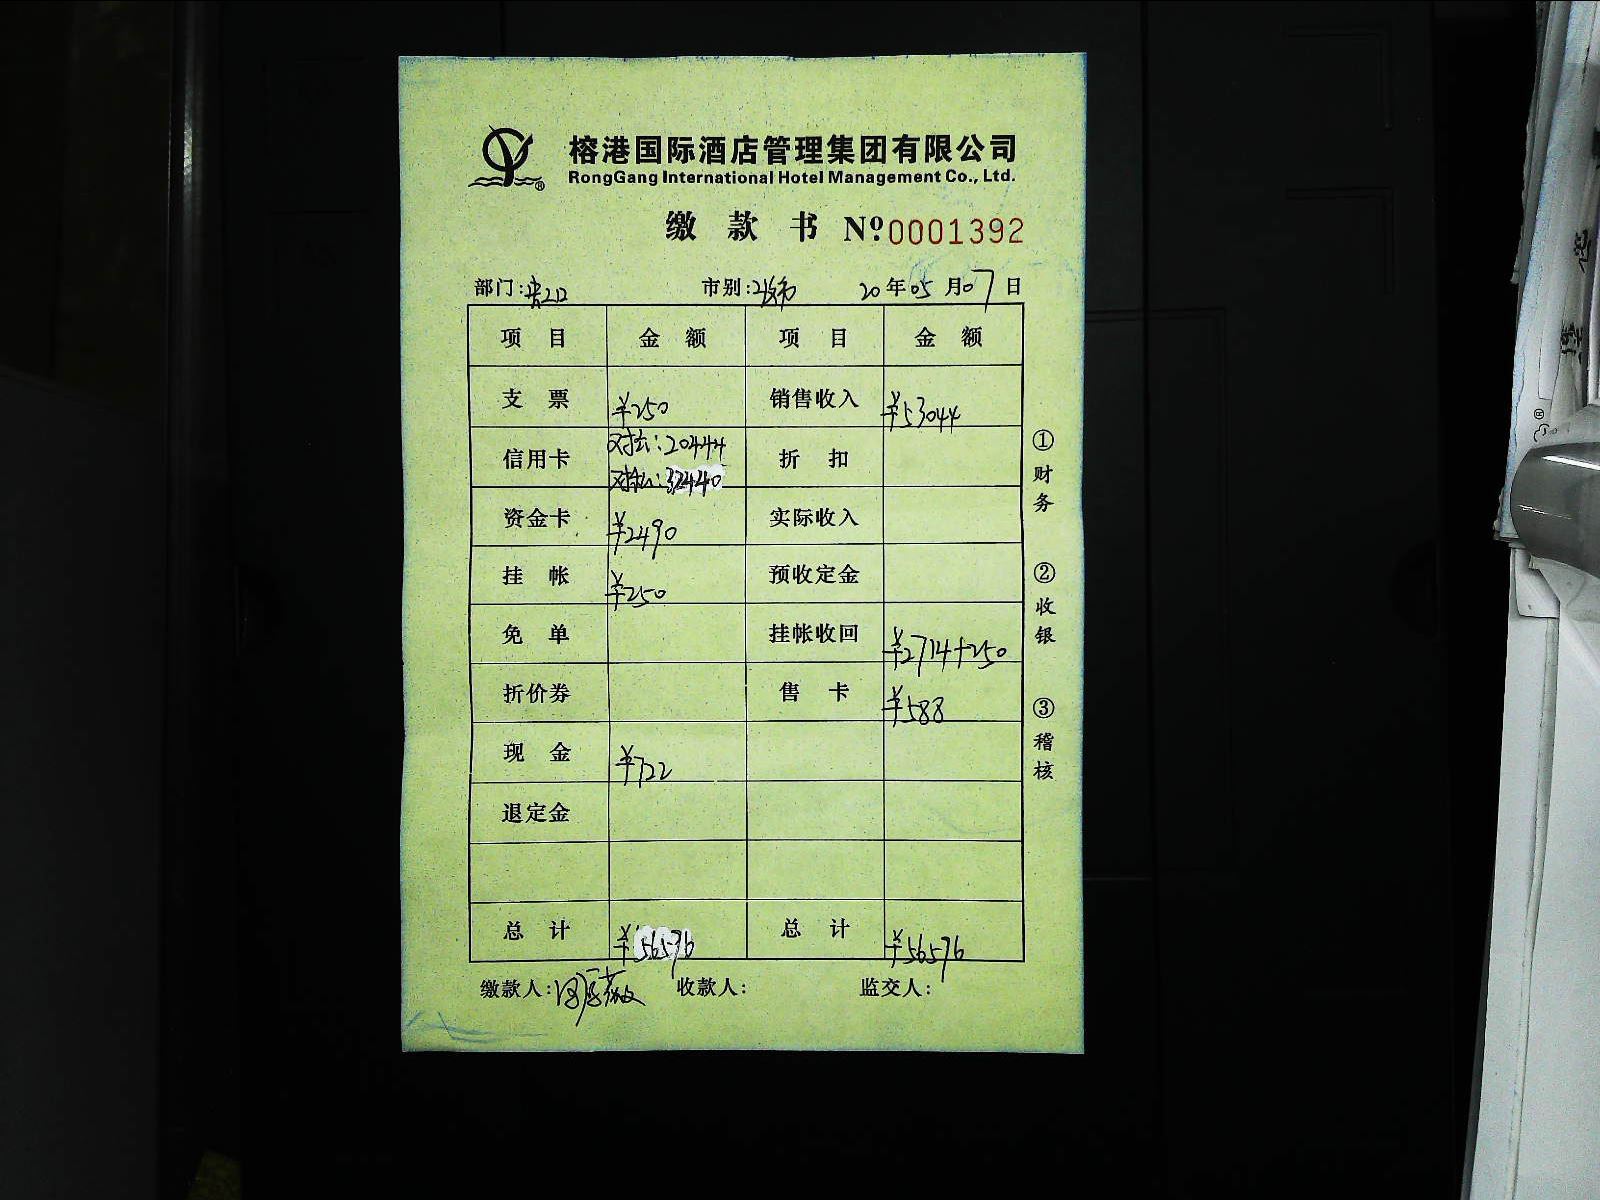 榕港国际酒店管理集团有限公司
RongGang International Hotel Management Co., Ltd.
缴款书 №0001392
部门: 市别: 20年05月07日
项目 金额 项目 金额
支票 ¥250 销售收入 ¥53044
信用卡 对公:20444 折扣
对私:32440
资金卡 ¥2490 实际收入
挂帐 ¥250 预收定金
免单 挂帐收回 ¥2714+250
折价券 售卡 ¥588
现金 ¥722
退定金
总计 ¥56576 总计 ¥56576
缴款人: 收款人: 监交人:
①财务
②收银
③稽核